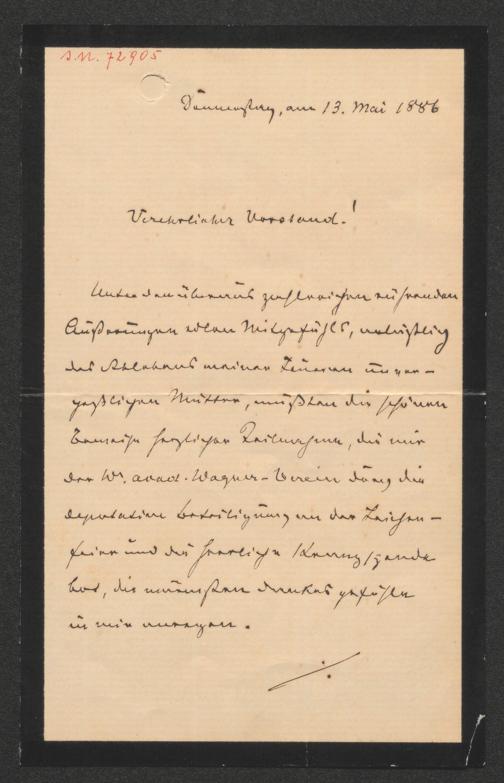 I.N. 72905
Donnerstag, am 13. Mai 1886
Verehrlicher Vorstand!
Unter den überaus zahlreichen rührenden
Äußerungen edlen Mitgefühls, anläßlich
des Ablebens meiner theueren unver-
geßlichen Mutter, mußten die schönen
Beweise herzlicher Teilnahme, die mir
der Wr. acad. Wagner-Verein durch die
deputative Beteiligung an der Leichen-
feier und die herrliche Kranzspende
bot, die innigsten Dankesgefühle
in mir anregen.
./.